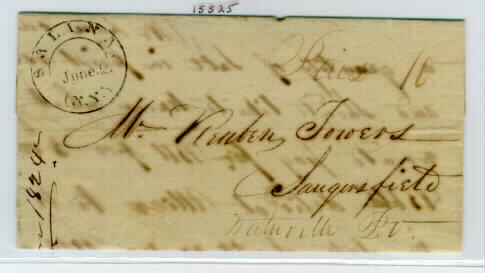 15525
SALINA
June 2
(N.Y.)
Paid 10
Mr. Reuben Towers
Sangersfield
Waterville P.O.
1824